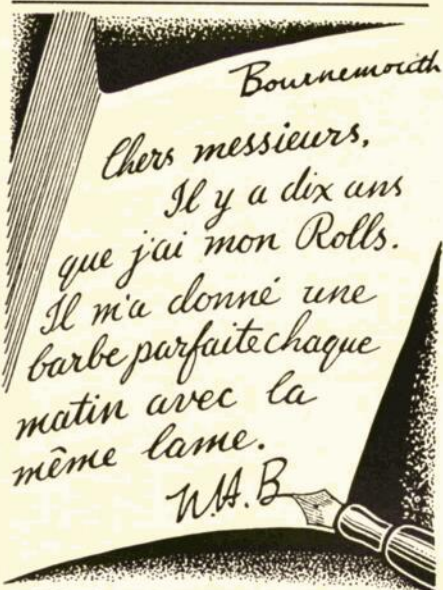 Bournemouth
Chers messieurs,
Il y a dix ans
que j'ai mon Rolls.
Il m'a donné une
barbe parfaite chaque
matin avec la
même lame.
W.A.B